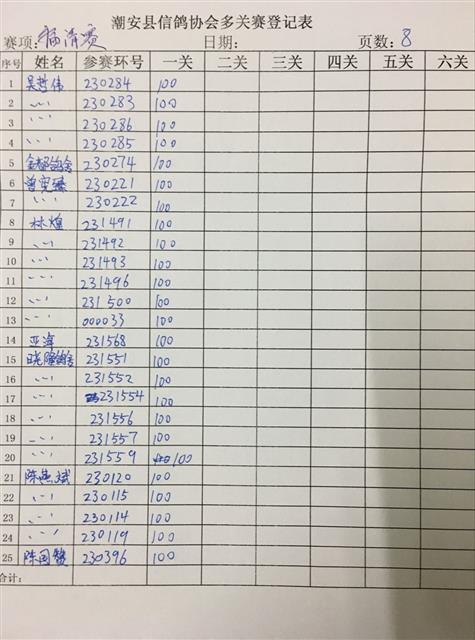 潮安县信鸽协会多关赛登记表
赛项: 福清赛 日期: 页数: 8
序号 姓名 参赛环号 一关 二关 三关 四关 五关 六关
1 吴哲伟 230284 100
2 、、、 230283 100
3 、、、 230286 100
4 、、、 230285 100
5 金都鸽舍 230274 100
6 曾宪臻 230221 100
7 、、、 230222 100
8 林煌 231491 100
9 、、、 231492 100
10 、、、 231493 100
11 、、、 231496 100
12 、、、 231500 100
13 、、、 000033 100
14 亚海 231568 100
15 晓隆鸽舍 231551 100
16 、、、 231552 100
17 、、、 231554 100
18 、、、 231556 100
19 、、、 231557 100
20 、、、 231559 100
21 陈燕斌 230120 100
22 、、、 230115 100
23 、、、 230114 100
24 、、、 230119 100
25 陈国賢 230396 100
合计: